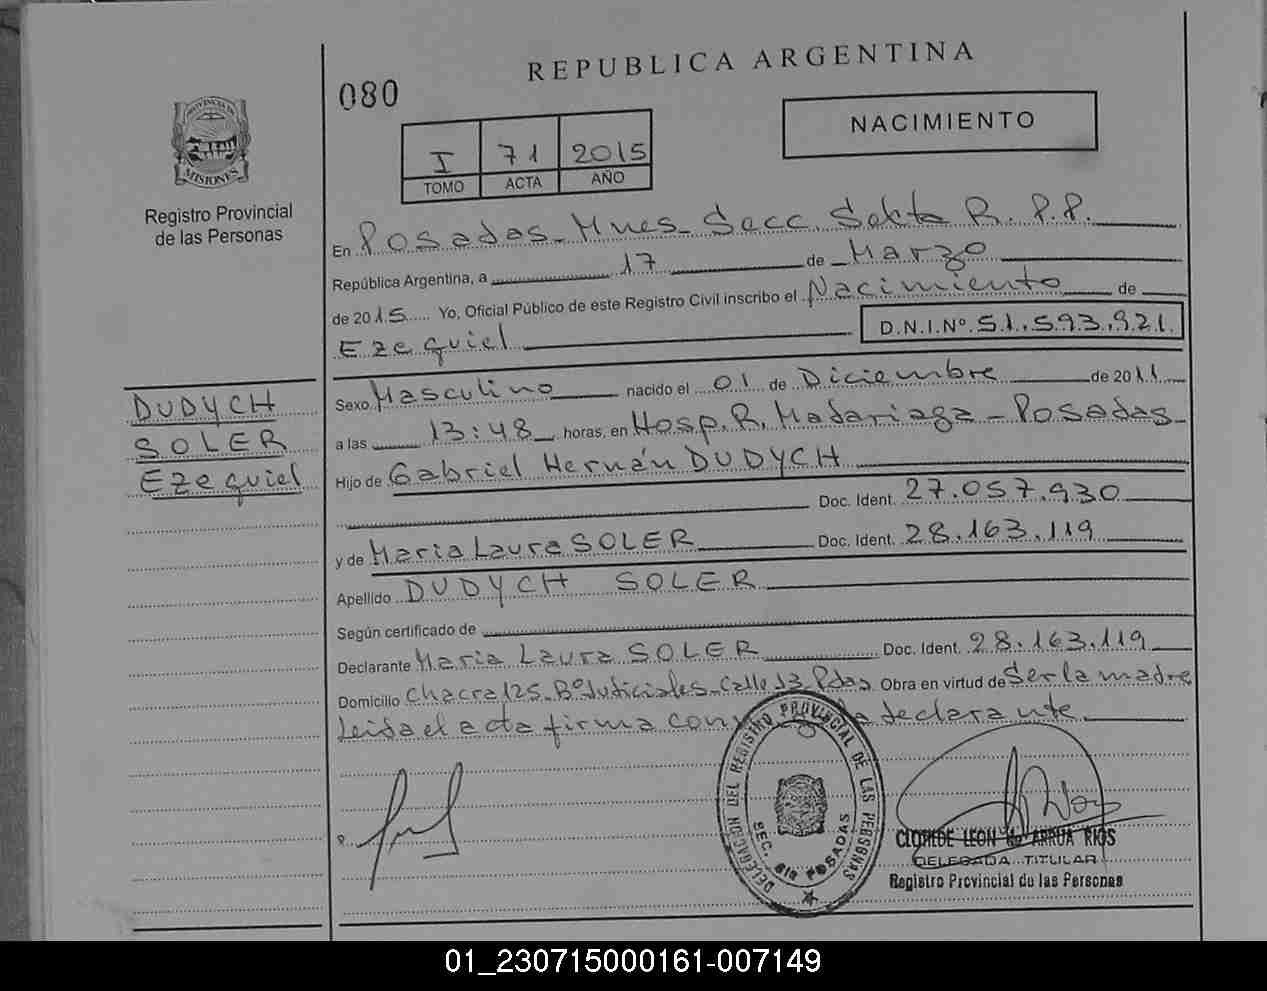 REPUBLICA ARGENTINA
080
NACIMIENTO
I 71 2015
TOMO ACTA AÑO
PROVINCIA DE
MISIONES
Registro Provincial
de las Personas
En Posadas Mnes Secc. Sekta R.P.P.
República Argentina, a 17 de Marzo
de 2015 Yo, Oficial Público de este Registro Civil inscribo el Nacimiento de
Ezequiel D.N.I.Nº 51.593.921
Sexo Masculino nacido el 01 de Diciembre de 2011
a las 13:48 horas, en Hosp. R. Madariaga - Posadas
Hijo de Gabriel Hernán DUDYCH
Doc. Ident. 27.057.930
y de Maria Laura SOLER Doc. Ident. 28.163.119
Apellido DUDYCH SOLER
Según certificado de
Declarante Maria Laura SOLER Doc. Ident. 28.163.119
Domicilio Chacra 125-Bº Judiciales-Calle 13 Pdas Obra en virtud de Ser la madre
Leida el acta firma con declarante
DUDYCH
SOLER
Ezequiel
DELEGACION DEL REGISTRO PROVINCIAL DE LAS PERSONAS
SEC. 6ta POSADAS
LEON ARRUA RIOS
DELEGADA TITULAR
Registro Provincial de las Personas
01_230715000161-007149